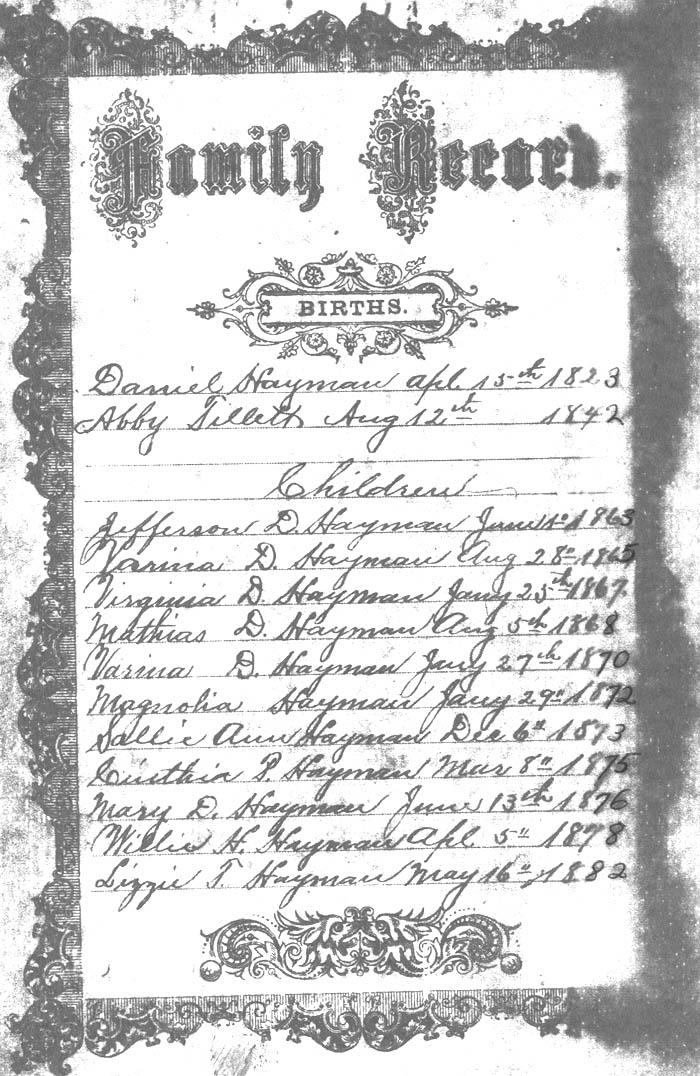 Family Record.
BIRTHS.
Daniel Hayman Apl 15th 1823
Abby Tillett Aug 12th 1842
Children
Jefferson D. Hayman June 1" 1863
Varina D. Hayman Aug 28" 1865
Virginia D. Hayman Jany 25th 1867
Mathias D. Hayman Aug 5th 1868
Varina D. Hayman Jany 27th 1870
Magnolia Hayman Jany 29" 1872
Sallie Ann Hayman Dec 6" 1873
Cinthia P. Hayman Mar 8" 1875
Mary D. Hayman June 13th 1876
Willie H. Hayman Apl 5" 1878
Lizzie T. Hayman May 16", 1882